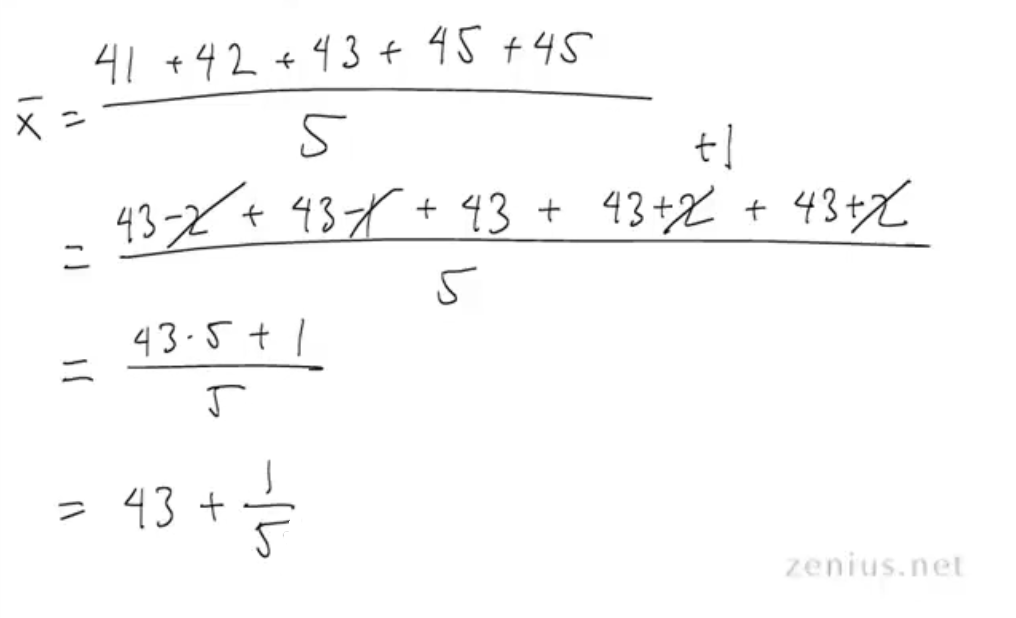 x̄ = (41 + 42 + 43 + 45 + 45) / 5
+1
= (43-2 + 43-1 + 43 + 43+2 + 43+2) / 5
= (43·5 + 1) / 5
= 43 + 1/5
zenius.net